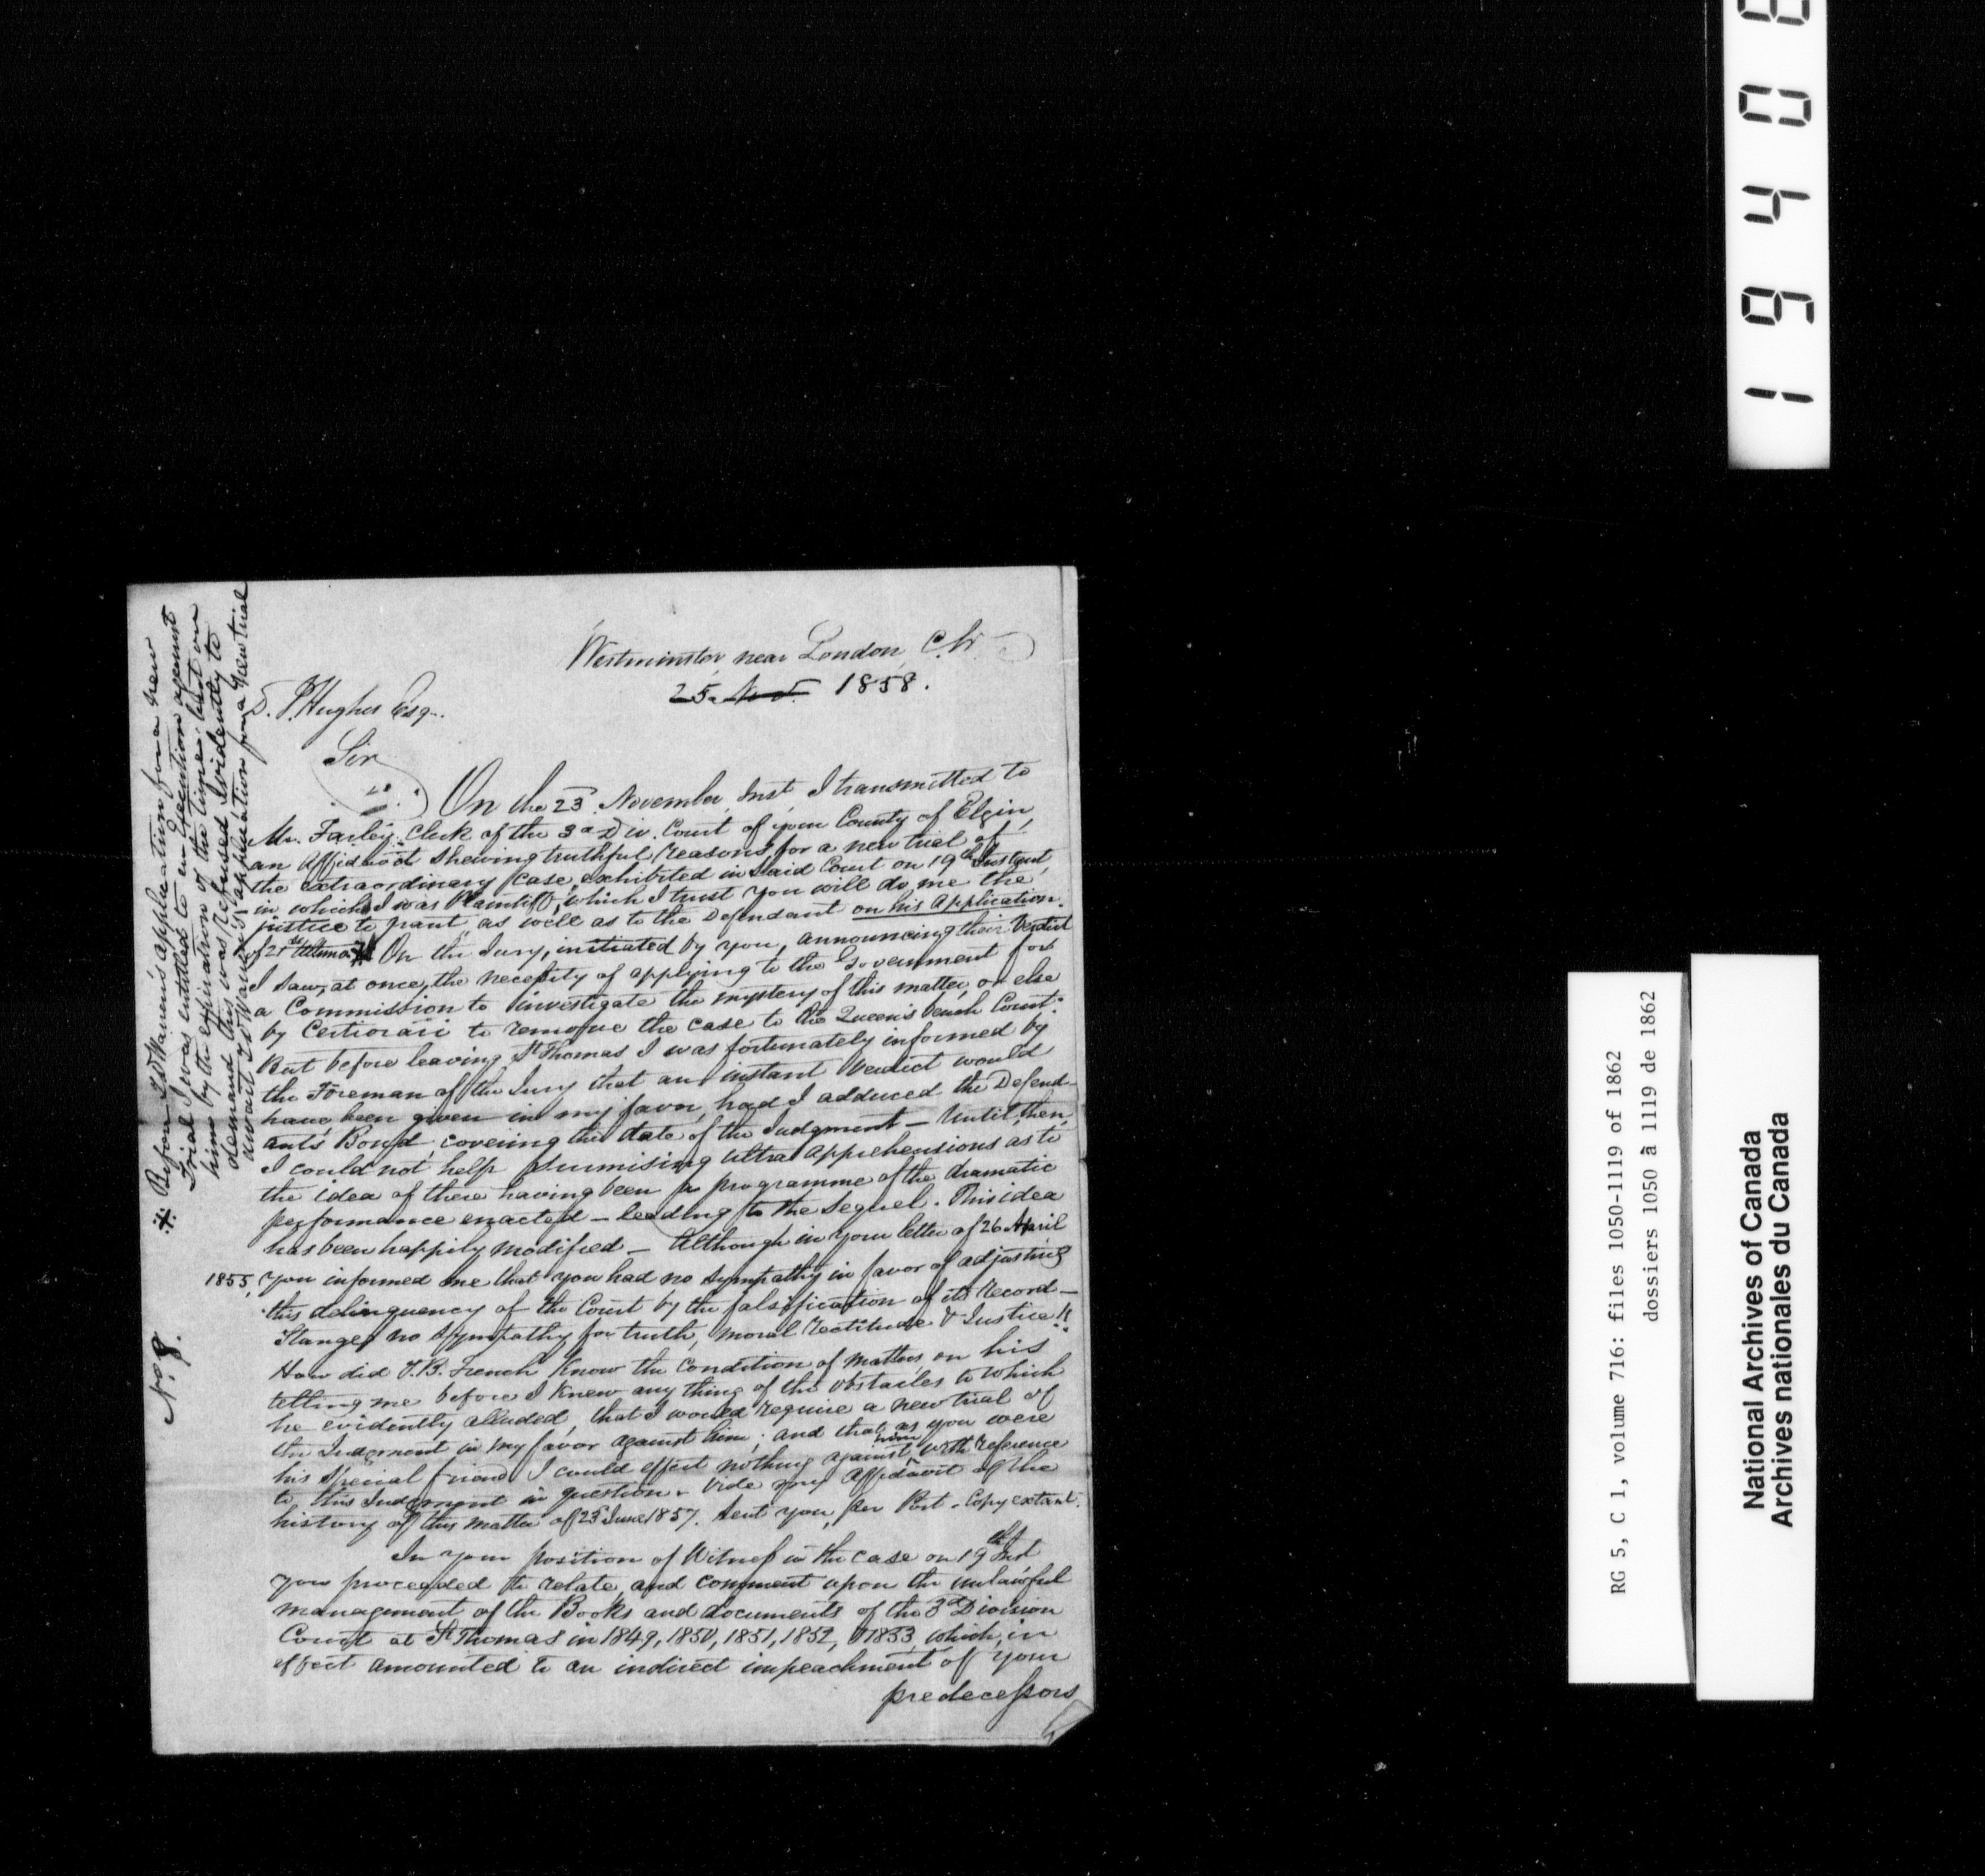 Westminster near London C.W
25. Nov. 1858.
D. J. Hughes Esq.
Sir
On the 23. November Inst I transmitted to
Mr. Farley Clerk of the 3d Div. Court of your County of Elgin,
an Affidavit shewing truthful reasons for a new trial of
the extraordinary case, exhibited in said Court on 19th Instant,
in which I was Plaintiff, which I trust you will do me the
justice to grant, as well as to the Defendant on his application.
of 21st Ultimo. ※ On the Jury, initiated by you, announcing their Verdict
I saw, at once, the necessity of applying to the Government for
a Commission to investigate the mystery of this matter, or else
by Certiorari to remove the case to the Queen's bench Court:
But before leaving St Thomas I was fortunately informed by
the Foreman of the Jury that an instant Verdict would
have been given in my favor, had I adduced the Defend-
ants' Bond, covering the date of the Judgment — Until then,
I could not help surmising ultra apprehensions as to
the idea of there having been a programme of the dramatic
performance enacted — leading to the Sequel. This idea
has been happily modified — Although in your letter of 26 April
1855, you informed me that you had no sympathy in favor of adjusting
this delinquency of the Court by the falsification of its Record —
Stange, no sympathy for truth, moral rectitude & Justice!!
How did J.B. French know the condition of matters on his
telling me before I knew any thing of the obstacles to which
he evidently alluded, that I would require a new trial of
the Judgment in my favor against him; and that as you were
his special friend I could effect nothing against him, with reference
to this Judgment in question. Vide my affidavit of the
history of this matter of 23d June 1857. sent you, per Post. Copy extant.
In your position of Witness in the case on 19th Inst
you proceeded to relate, and comment upon the unlawful
management of the Books and documents of the 3d Division
Court at St Thomas in 1849, 1850, 1851, 1852, & 1853, which, in
effect amounted to an indirect impeachment of your
predecessors
※ Before application for a new
Trial I was entitled to an Execution against
him by the expiration of the time: but on
demand this was refused Evidently to
await application for a New trial
No 8.
1 9 4 0
RG 5, C 1, volume 716: files 1050-1119 of 1862
dossiers 1050 à 1119 de 1862
National Archives of Canada
Archives nationales du Canada